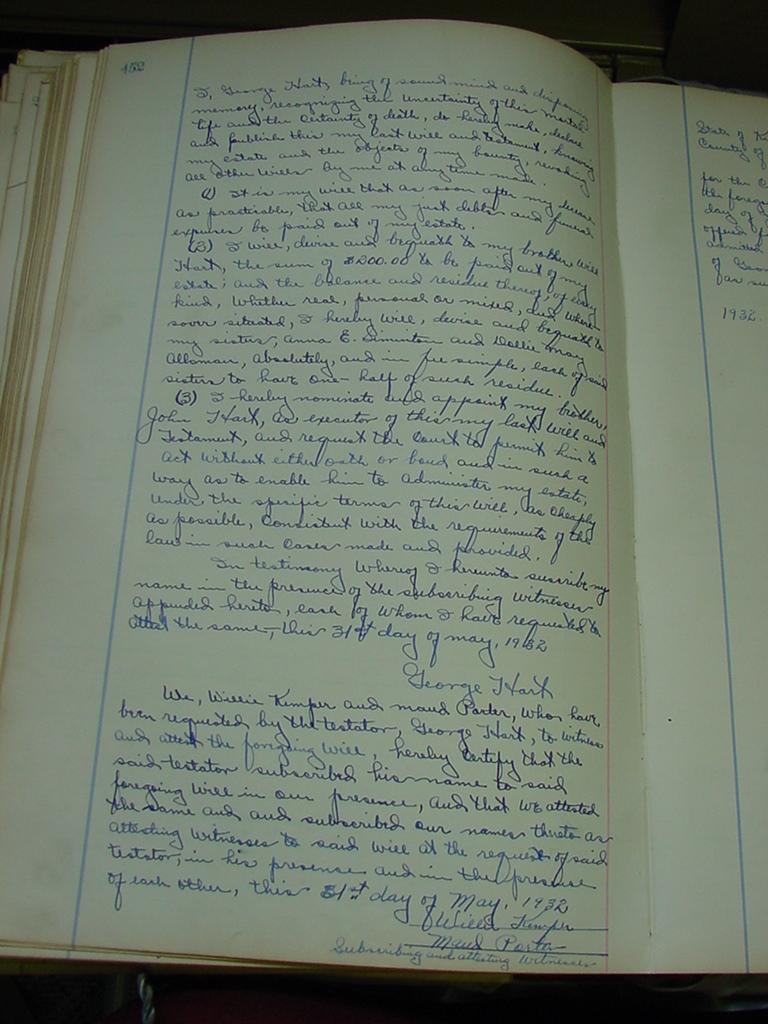 452
I, George Hart, being of sound mind and disposing
memory, recognizing the uncertainty of this mortal
life and the certainty of death, do hereby make, declare
and publish this my last will and testament, knowing
my estate and the objects of my bounty, revoking
all other wills by me at any time made.
(1) It is my will that as soon after my decease
as practicable, that all my just debts and funeral
expenses be paid out of my estate.
(2) I will, devise and bequeath to my brother Will
Hart, the sum of $200.00 to be paid out of my
estate; and the balance and residue thereof, of every
kind, whether real, personal or mixed, and where-
soever situated, I hereby will, devise and bequeath to
my sisters, Anna E. and Dollie May
Alloman, absolutely, and in fee simple, each of said
sisters to have one-half of such residue.
(3) I hereby nominate and appoint my brother,
John Hart, as executor of this my last will and
Testament, and request the Court to permit him to
act without either oath or bond and in such a
way as to enable him to administer my estate,
under the specific terms of this will, as cheaply
as possible, consistent with the requirements of the
law in such cases made and provided.
In testimony whereof I hereunto suscribe my
name in the presence of the subscribing witnesses
appended hereto, each of whom I have requested to
attest the same, this 31st day of May, 1932
George Hart
We, Willie Kemper and Maud Porter, who have
been requested by the testator, George Hart, to witness
and attest the foregoing will, hereby certify that the
said testator subscribed his name to said
foregoing will in our presence, and that we attested
the same and and subscribed our names thereto as
attesting witnesses to said will at the request of said
testator, in his presence and in the presence
of each other, this 31st day of May, 1932
Willie Kemper
Maud Porter
Subscribing and attesting witnesses
State of
County of
for the
the foregoing
day of
offered
admitted
of Geor
far as
1932.